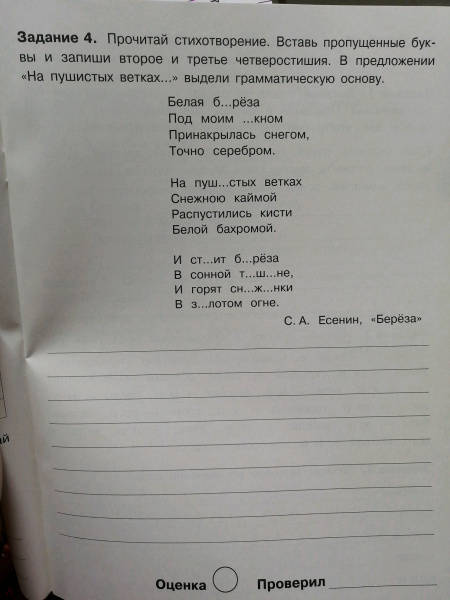 Задание 4. Прочитай стихотворение. Вставь пропущенные бук-
вы и запиши второе и третье четверостишия. В предложении
«На пушистых ветках...» выдели грамматическую основу.
Белая б...рёза
Под моим ...кном
Принакрылась снегом,
Точно серебром.
На пуш...стых ветках
Снежною каймой
Распустились кисти
Белой бахромой.
И ст...ит б...рёза
В сонной т...ш...не,
И горят сн...ж...нки
В з...лотом огне.
С. А. Есенин, «Берёза»
ай
Оценка Проверил